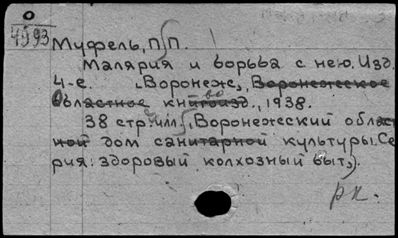 0
4993
Муфель, П П.
Малярия и борьба с нею. Изд.
4-е. "Воронеж", Воронежское
Областное книгоизд., 1938.
38 стр. илл. (Воронежский област
ной дом санитарной культуры. Се
рия: здоровый колхозный быт.)
рк.